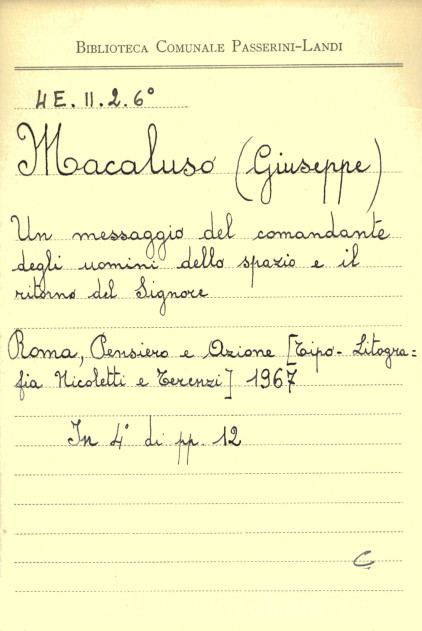 BIBLIOTECA COMUNALE PASSERINI-LANDI
4 E. II. 2. 6°
Macaluso (Giuseppe)
Un messaggio del comandante
degli uomini dello spazio e il
ritorno del Signore
Roma, Pensiero e Azione [Tipo-Litogra=
fia Nicoletti e Terenzi] 1967
In 4° di pp. 12
C